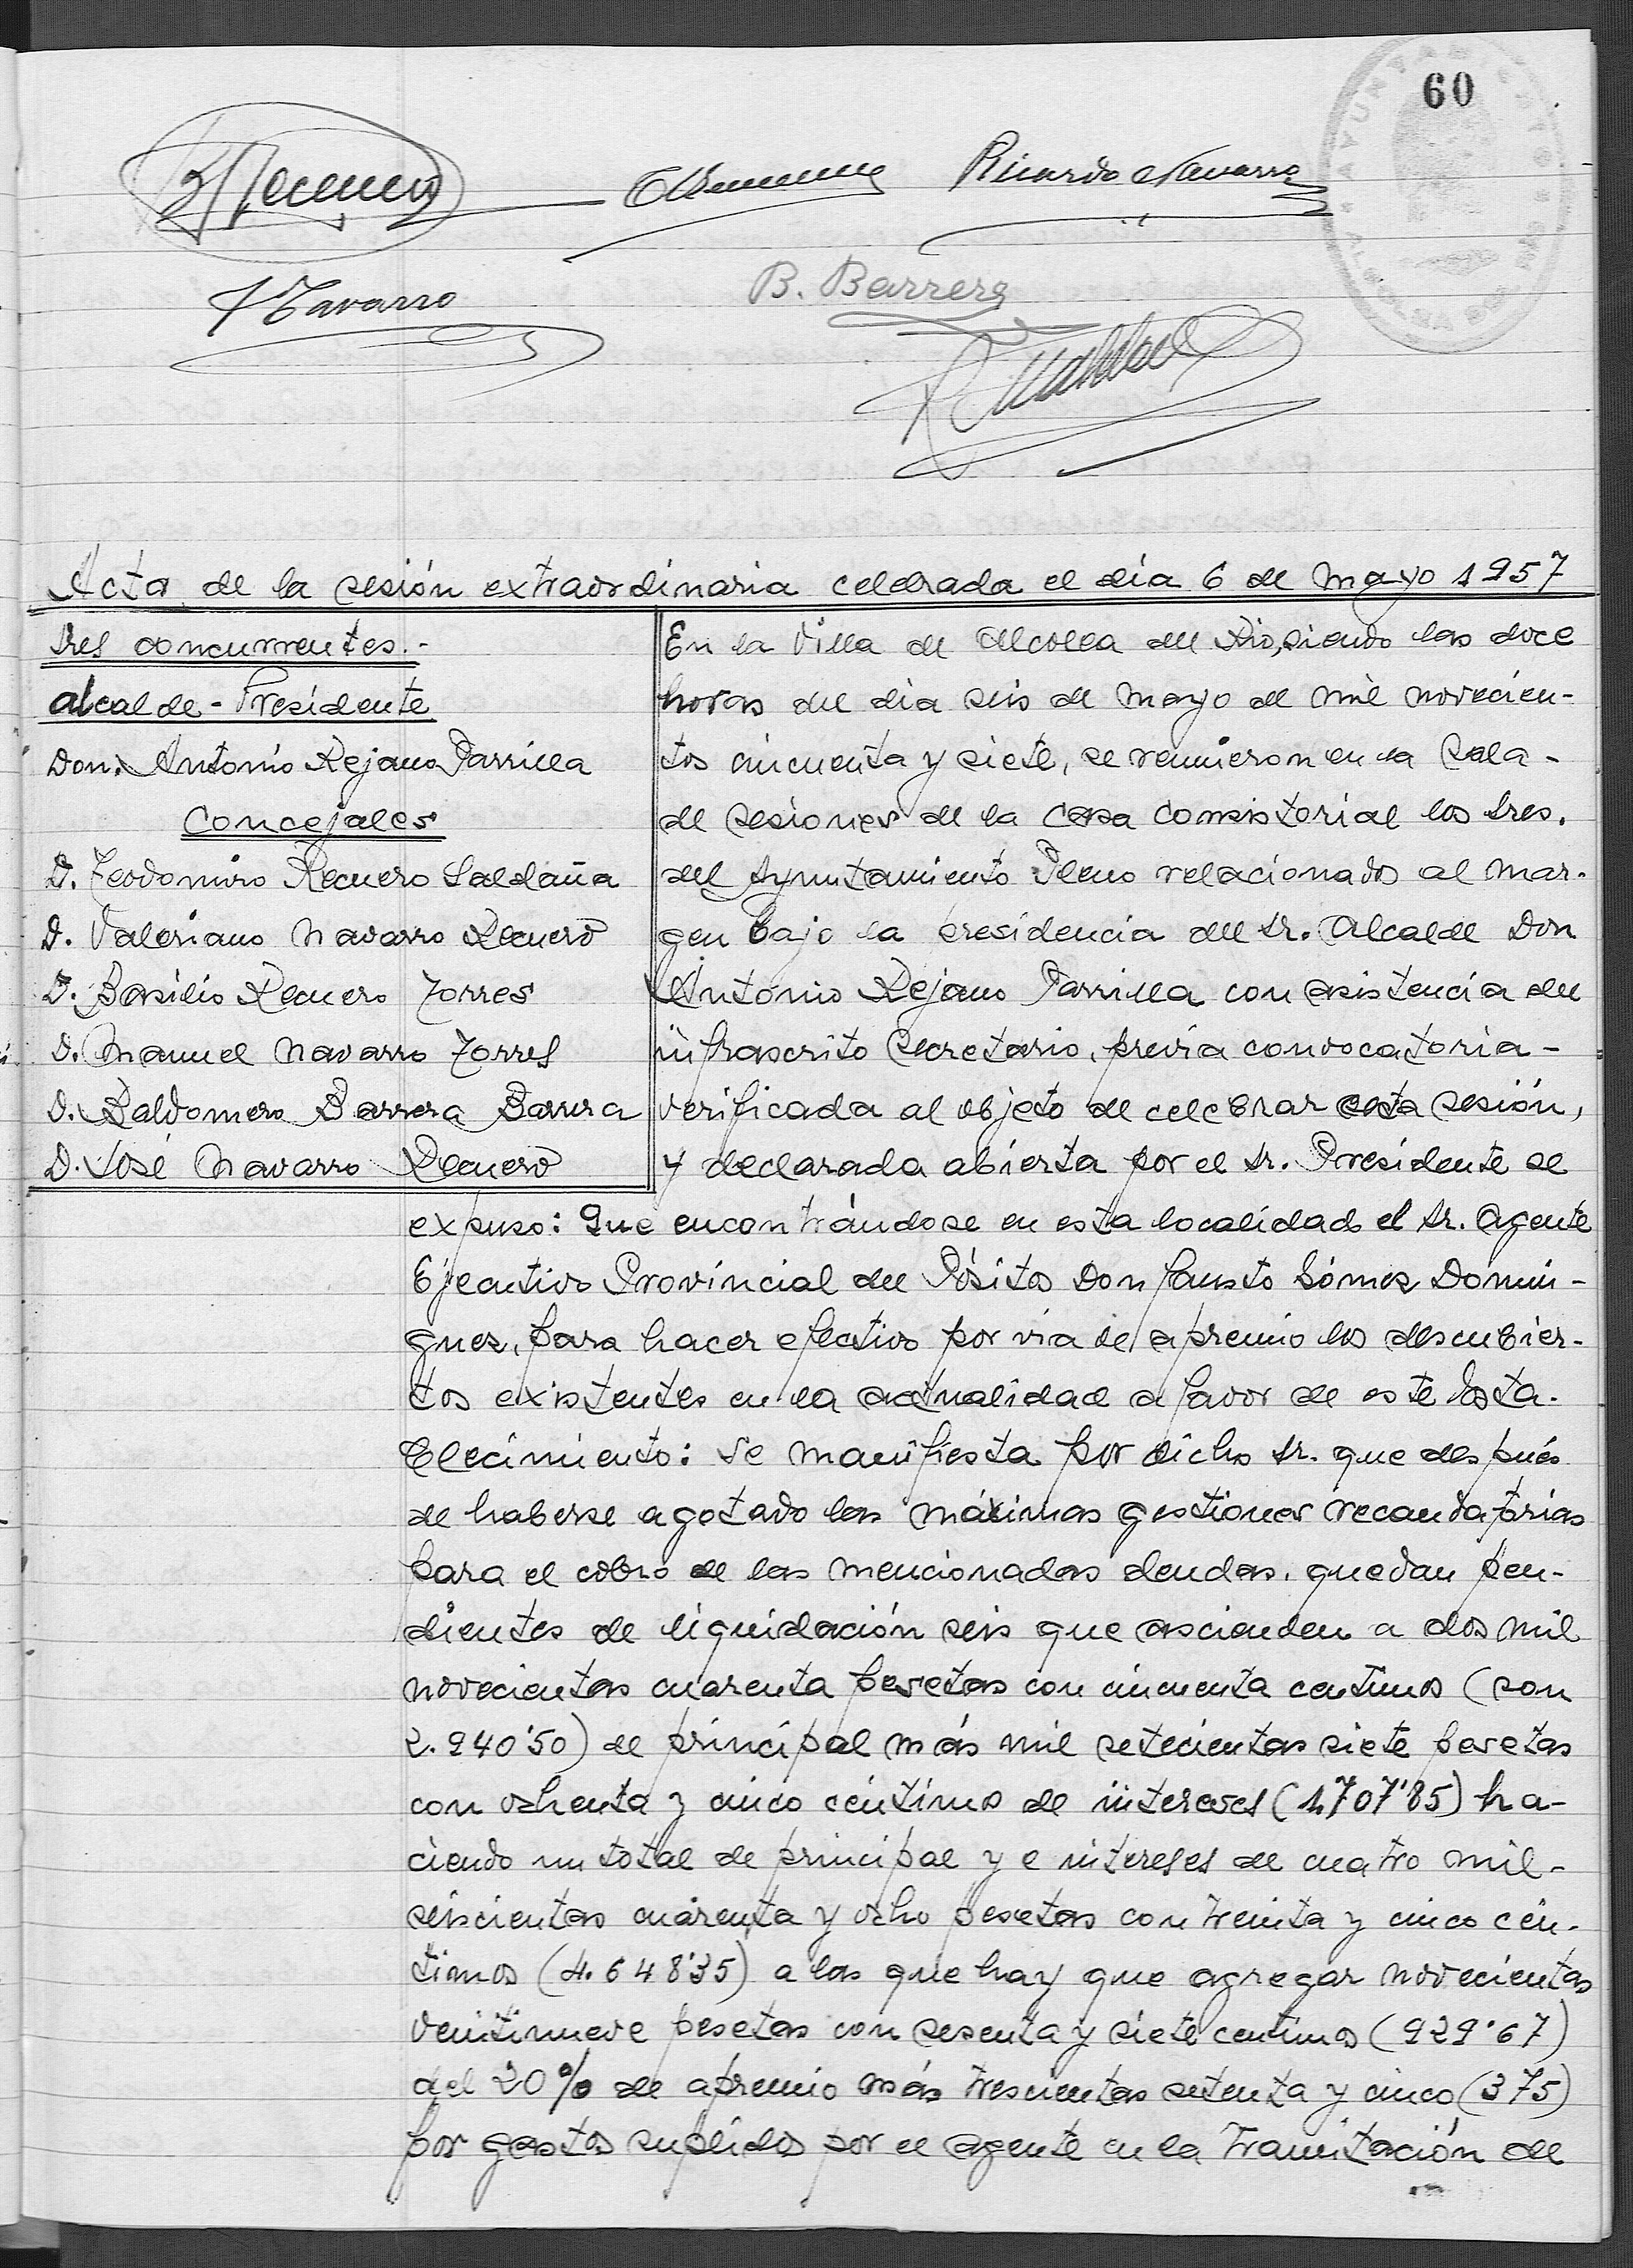 60
Ricardo Navarro
Navarro
B. Barrera
Acta de la sesión extraordinaria celebrada el día 6 de Mayo 1957
Sres concurrentes.-
Alcalde-Presidente
Don. Antonio Rejano Parrilla
Concejales
D. Teodomiro Recuero Saldaña
D. Valeriano Navarro Recuero
D. Basilio Recuero Torres
D. Manuel Navarro Torres
D. Baldomero Barrera Barrera
D. José Navarro Recuero
En la Villa de Alcolea del Rio, siendo las doce
horas del dia seis de Mayo de mil novecien-
tos cincuenta y siete, se reunieron en la Sala-
de sesiones de la Casa Consistorial los Sres.
del Ayuntamiento Pleno relacionados al mar-
gen bajo la presidencia del Sr. Alcalde Don
Antonio Rejano Parrilla con asistencia del
infrascrito Secretario, previa convocatoria-
verificada al objeto de celebrar esta sesión,
y declarada abierta por el Sr. Presidente se
expuso: Que encontrándose en esta localidad el Sr. Agente
Ejecutivo Provincial del Pósitos Don Fausto Gómez Domin-
guez, para hacer efectivo por via de apremio los descubier-
tos existentes en la actualidad a favor de este Esta-
blecimiento: Se manifiesta por dicho Sr. que después
de haberse agotado las máximas gestiones recaudatorias
para el cobro de las mencionadas deudas, quedan pen-
dientes de liquidación seis que ascienden a dos mil
novecientas cuarenta pesetas con cincuenta centimos (son
2.940'50) de principal más mil setecientas siete pesetas
con ochenta y cinco céntimos de intereses (1.707'85) ha-
ciendo un total de principal y e intereses de cuatro mil-
seiscientas cuarenta y ocho pesetas con treinta y cinco cén-
timos (4.648'35) a las que hay que agregar novecientas
veintinueve pesetas con sesenta y siete centimos (929'67)
del 20% de apremio más trescientas setenta y cinco (375)
por gastos suplidos por el agente en la tramitación de